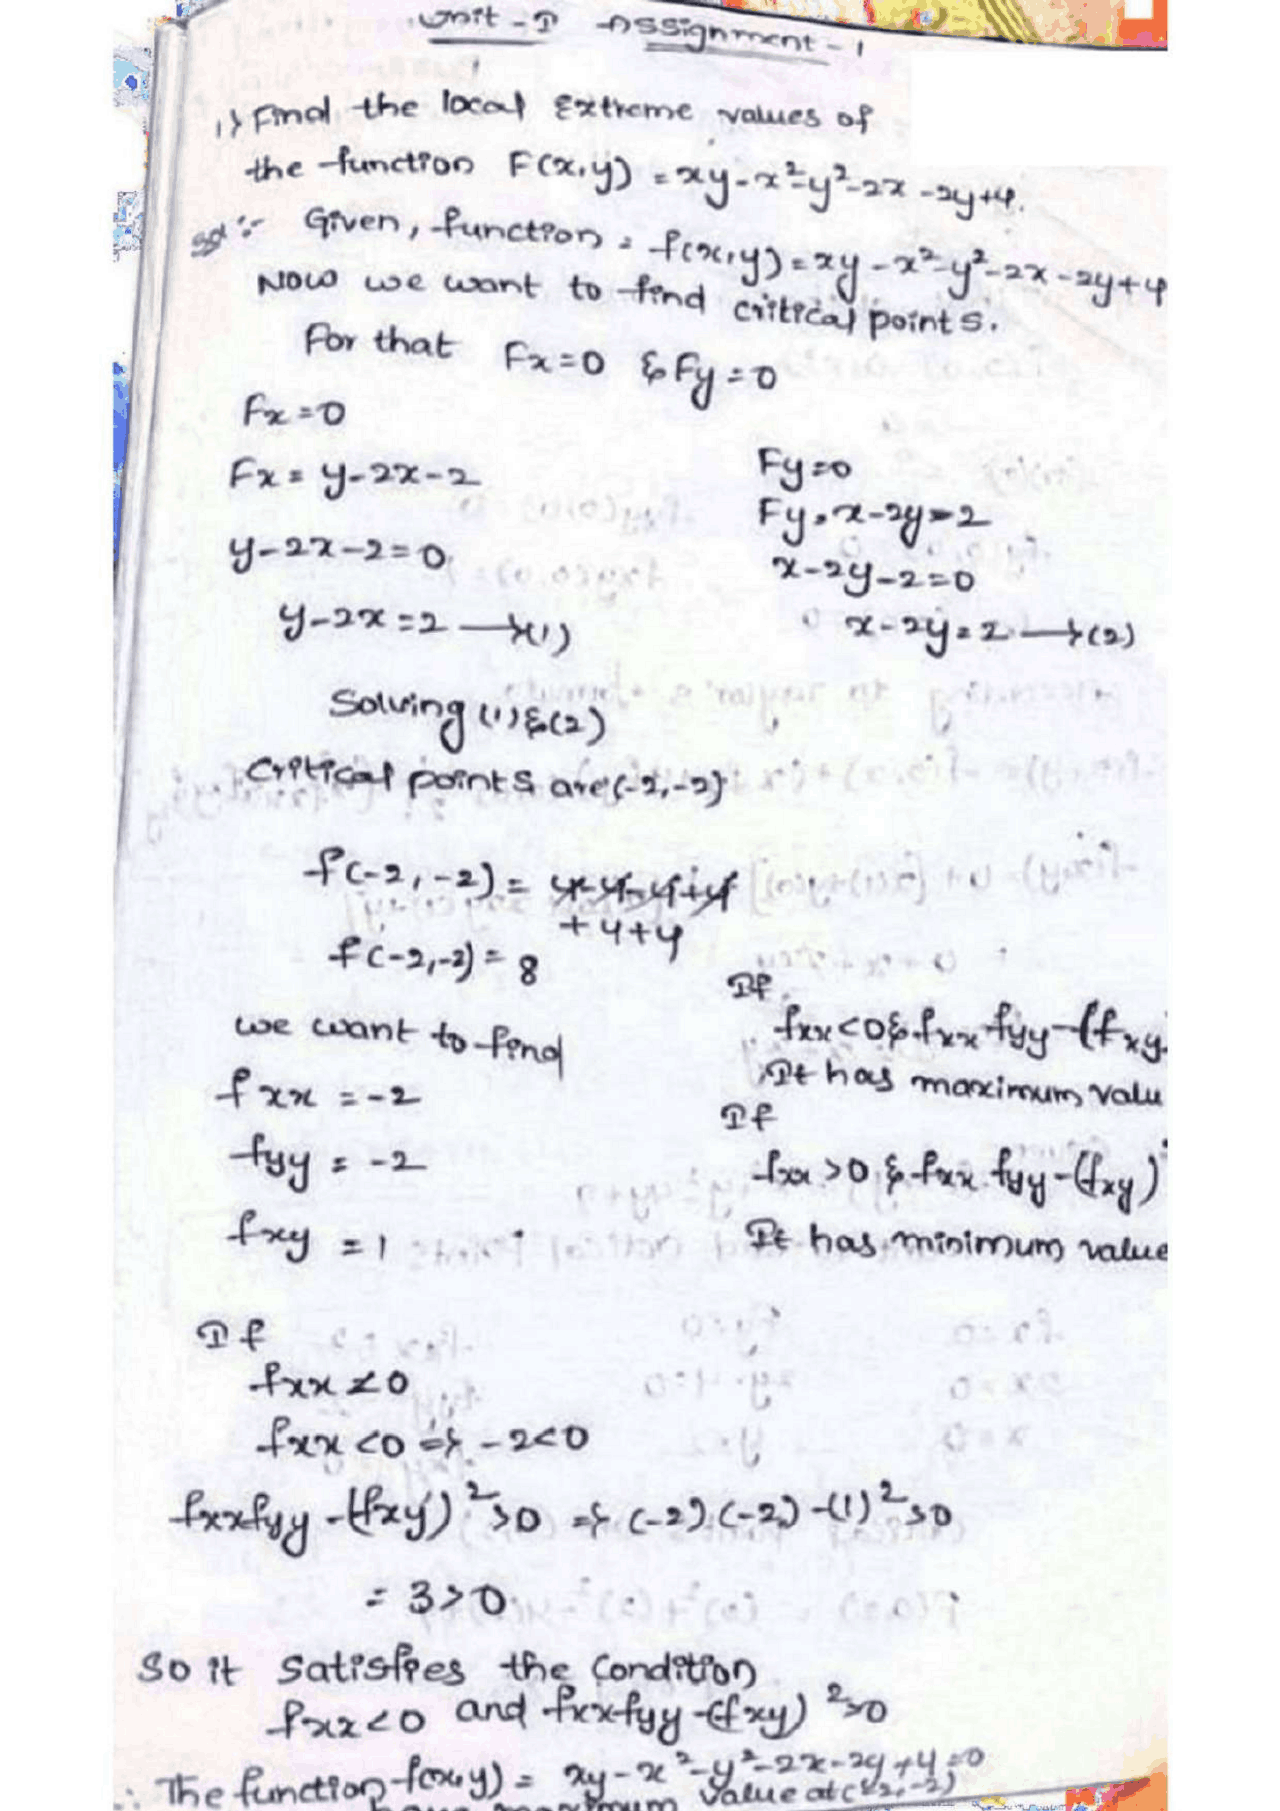 Unit - I Assignment - 1
1) Find the local Extreme values of
the function F(x,y) = xy-x²-y²-2x-2y+4.
Sol :- Given, function = f(x,y) = xy-x²-y²-2x-2y+4
Now we want to find critical points.
For that Fx=0 & Fy=0
Fx=0
Fx = y-2x-2
y-2x-2=0
y-2x=2 →(1)
Fy=0
Fy = x-2y-2
x-2y-2=0
x-2y=2 →(2)
Solving (1)&(2)
Critical points are (-2,-2)
f(-2,-2) = 4-4-4+4
+4+4
f(-2,-2) = 8
we want to find
fxx = -2
fyy = -2
fxy = 1
If
fxx<0 & fxx fyy-(fxy
It has maximum valu
If
fxx >0 & fxx fyy-(fxy)
It has minimum value
If
fxx<0
fxx<0 => -2<0
fxxfyy-(fxy)²>0 => (-2)(-2)-(1)²>0
= 3>0
So it satisfies the condition
fxx<0 and fxxfyy-(fxy)²>0
∴ The function f(x,y) = xy-x²-y²-2x-2y+4=0
have maximum value at (-2,-2)